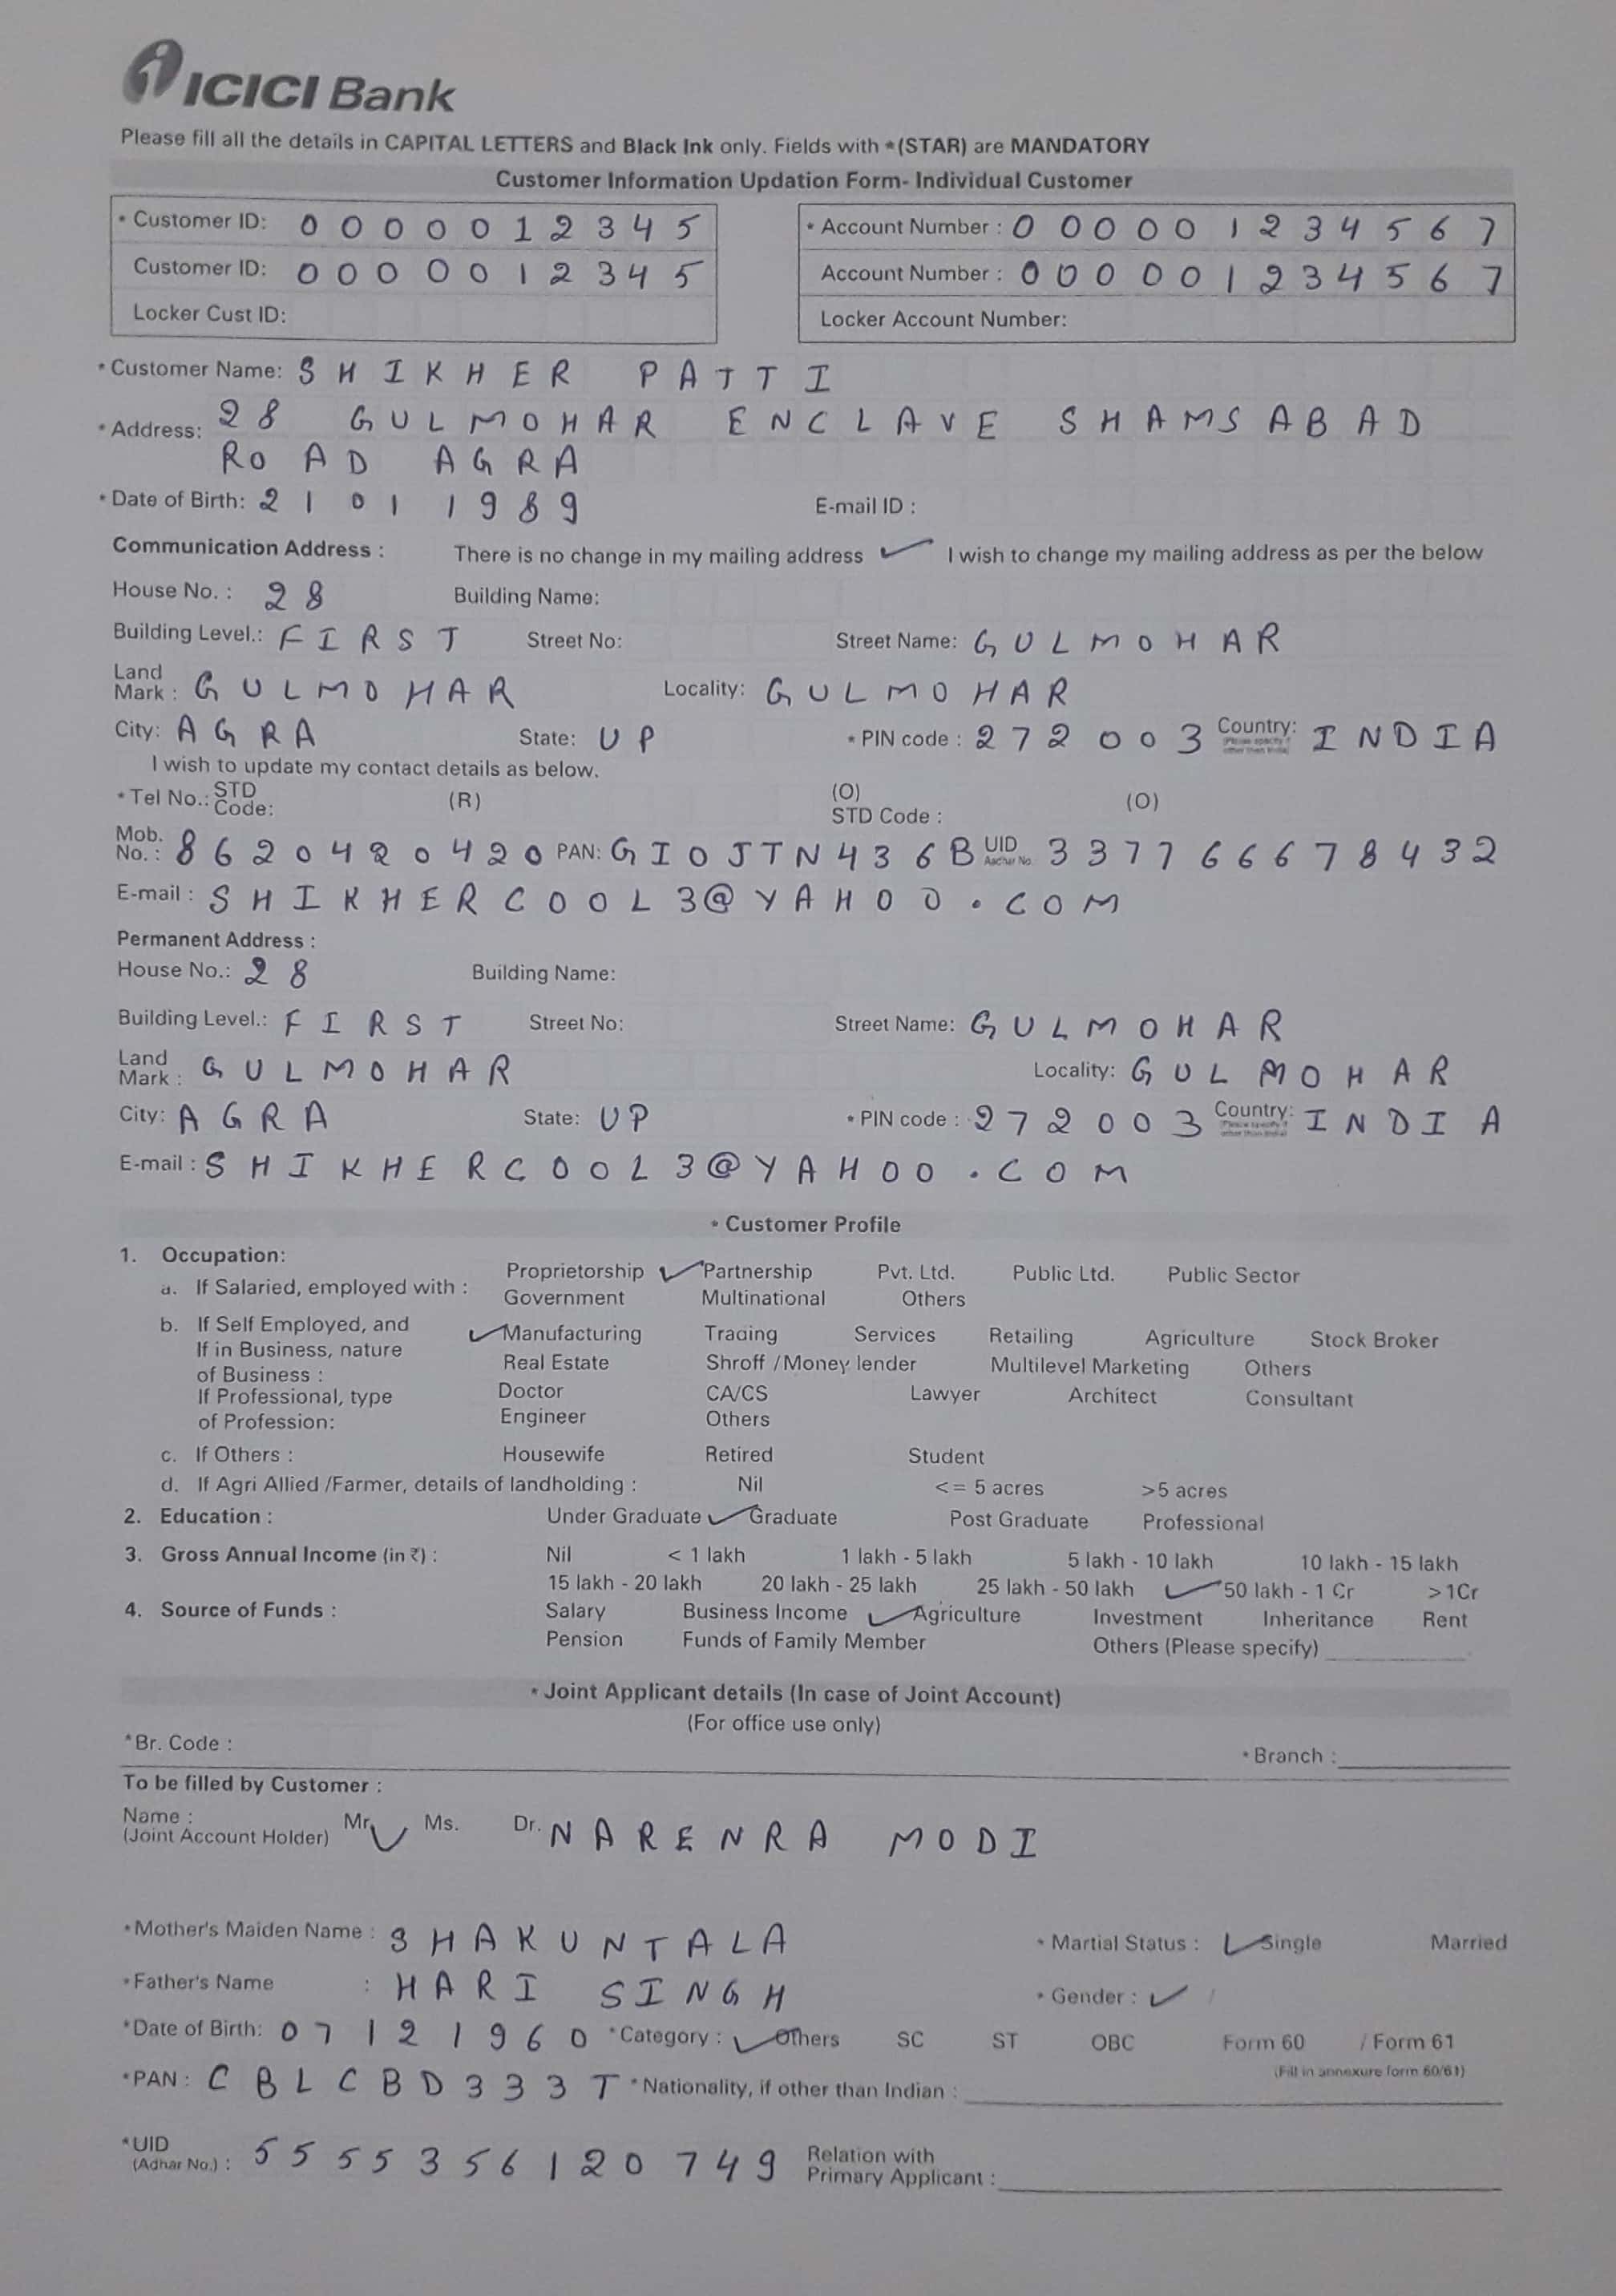 ICICI Bank
Please fill all the details in CAPITAL LETTERS and Black Ink only. Fields with *(STAR) are MANDATORY
Customer Information Updation Form- Individual Customer
* Customer ID: 0000012345 * Account Number : 000001234567
Customer ID: 0000012345 Account Number : 000001234567
Locker Cust ID: Locker Account Number:
* Customer Name: SHIKHER PATTI
* Address: 28 GULMOHAR ENCLAVE SHAMSABAD
ROAD AGRA
* Date of Birth: 21 01 1989 E-mail ID :
Communication Address : There is no change in my mailing address ✓ I wish to change my mailing address as per the below
House No. : 28 Building Name:
Building Level.: FIRST Street No: Street Name: GULMOHAR
Land Mark : GULMOHAR Locality: GULMOHAR
City: AGRA State: UP * PIN code : 272003 Country: INDIA
I wish to update my contact details as below.
* Tel No.: STD Code: (R) (O) STD Code : (O)
Mob. No. : 8620420420 PAN: GIOJTN436B UID Aadhar No. 337766678432
E-mail : SHIKHERCOOL3@YAHOO.COM
Permanent Address :
House No.: 28 Building Name:
Building Level.: FIRST Street No: Street Name: GULMOHAR
Land Mark : GULMOHAR Locality: GULMOHAR
City: AGRA State: UP * PIN code : 272003 Country: INDIA
E-mail : SHIKHERCOOL3@YAHOO.COM
* Customer Profile
1. Occupation:
a. If Salaried, employed with : Proprietorship ✓ Partnership Pvt. Ltd. Public Ltd. Public Sector
Government Multinational Others
b. If Self Employed, and If in Business, nature of Business : ✓ Manufacturing Trading Services Retailing Agriculture Stock Broker
Real Estate Shroff /Money lender Multilevel Marketing Others
If Professional, type of Profession: Doctor CA/CS Lawyer Architect Consultant
Engineer Others
c. If Others : Housewife Retired Student
d. If Agri Allied /Farmer, details of landholding : Nil <= 5 acres >5 acres
2. Education : Under Graduate ✓ Graduate Post Graduate Professional
3. Gross Annual Income (in ₹) : Nil < 1 lakh 1 lakh - 5 lakh 5 lakh - 10 lakh 10 lakh - 15 lakh
15 lakh - 20 lakh 20 lakh - 25 lakh 25 lakh - 50 lakh ✓ 50 lakh - 1 Cr >1Cr
4. Source of Funds : Salary Business Income ✓ Agriculture Investment Inheritance Rent
Pension Funds of Family Member Others (Please specify)
* Joint Applicant details (In case of Joint Account)
(For office use only)
*Br. Code : * Branch :
To be filled by Customer :
Name : (Joint Account Holder) Mr. ✓ Ms. Dr. NARENRA MODI
*Mother's Maiden Name : SHAKUNTALA * Martial Status : ✓ Single Married
*Father's Name : HARI SINGH * Gender : ✓ /
*Date of Birth: 07 12 1960 *Category : ✓ Others SC ST OBC Form 60 / Form 61
(Fill in annexure form 60/61)
*PAN : CBLCBD333T *Nationality, if other than Indian :
*UID (Adhar No.) : 5555356120749 Relation with Primary Applicant :